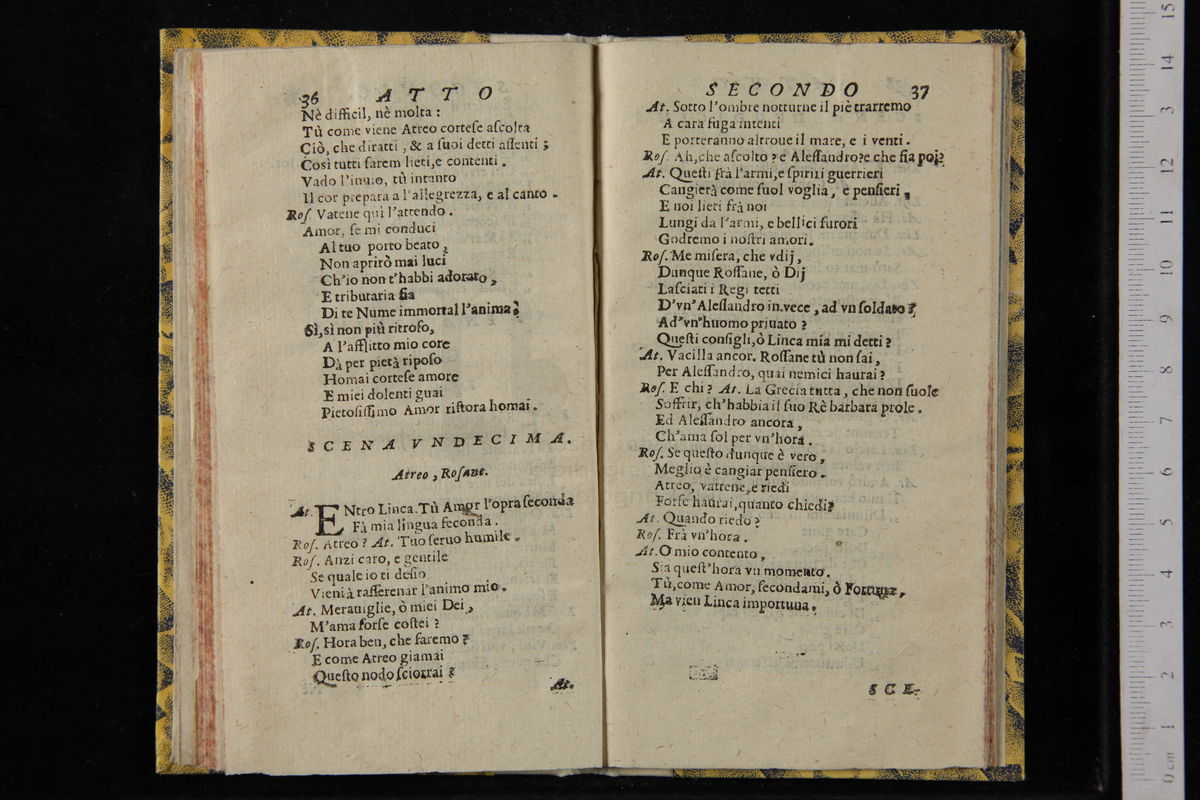 36 ATTO
Nè difficil, nè molta :
Tù come viene Atreo cortese ascolta
Ciò, che diratti , & a suoi detti assenti ;
Così tutti sarem lieti, e contenti .
Vado l'inuio, tù intanto
Il cor prepara a l'allegrezza, e al canto .
Ros. Vatene quì l'attendo .
Amor, se mi conduci
Al tuo porto beato ,
Non aprirò mai luci
Ch'io non t'habbi adorato ,
E tributaria sia
Di te Nume immortal l'anima ?
Sì, sì non più ritroso,
A l'afflitto mio core
Dà per pietà riposo
Homai cortese amore
E miei dolenti guai
Pietosissimo Amor ristora homai .
SCENA VNDECIMA.
Atreo , Rosane.
At. ENtro Linca. Tù Amor l'opra seconda
Fà mia lingua feconda .
Ros. Atreo ? At. Tuo seruo humile .
Ros. Anzi caro, e gentile
Se quale io ti desio
Vieni à rasserenar l'animo mio .
At. Merauiglie, ò miei Dei ,
M'ama forse costei ?
Ros. Hora ben, che faremo ?
E come Atreo giamai
Questo nodo sciorrai ?
At.
SECONDO 37
At. Sotto l'ombre notturne il piè trarremo
A cara fuga intenti
E porteranno altroue il mare, e i venti .
Ros. Ah, che ascolto ? e Alessandro ? e che sia poi ?
At. Questi frà l'armi, e spiriti guerrieri
Cangierà come suol voglia , e pensieri ,
E noi lieti frà noi
Lungi da l'armi, e bellici furori
Godremo i nostri amori .
Ros. Me misera, che vdij ,
Dunque Rossane, ò Dij
Lasciati i Regi tetti
D'vn'Alessandro in vece , ad vn soldato ?
Ad'vn'huomo priuato ?
Questi consigli, ò Linca mia mi detti ?
At. Vacilla ancor. Rossane tù non sai ,
Per Alessandro, quai nemici haurai ?
Ros. E chi ? At. La Grecia tutta , che non suole
Soffrir, ch'habbia il suo Rè barbara prole .
Ed Alessandro ancora ,
Ch'ama sol per vn'hora .
Ros. Se questo dunque è vero ,
Meglio è cangiar pensiero .
Atreo, vattene, e riedi
Forse haurai, quanto chiedi ?
At. Quando riedo ?
Ros. Frà vn'hora .
At. O mio contento ,
Sia quest'hora vn momento .
Tù, come Amor, secondami, ò Fortuna ,
Ma vien Linca importuna .
SCE-